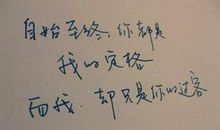 自始至终，你都是
我的定格
而我，却只是你的过客